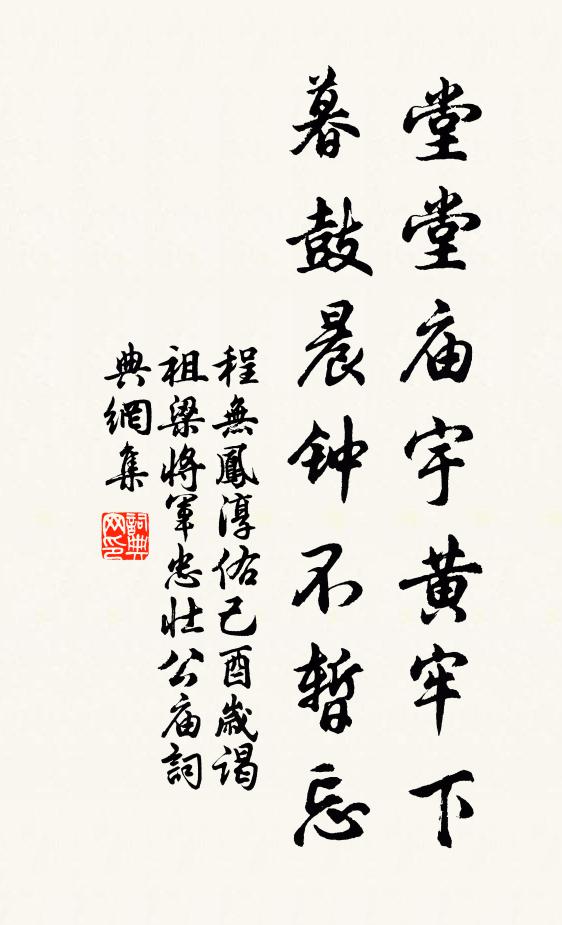 堂堂庙宇黄牢下
暮鼓晨钟不暂忘
程無鳳淳佑己酉歲谒
祖梁将軍忠壮公庙詞
典網集
詞典
网印